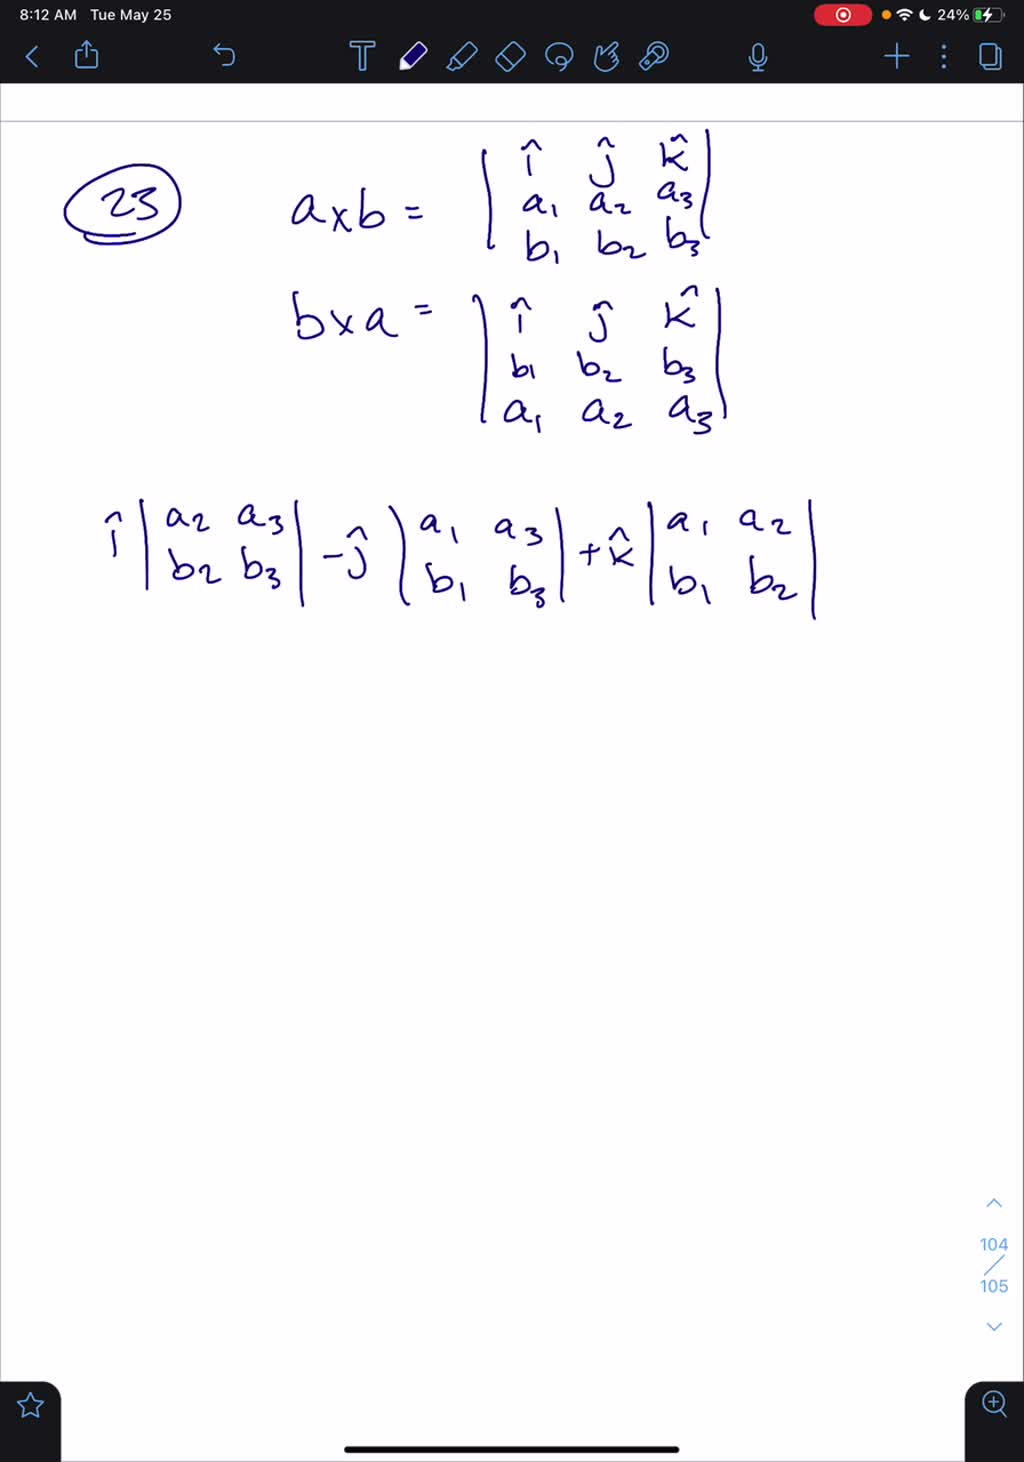 8:12 AM Tue May 25 24%
T
23 a×b = | î ĵ k̂ |
a₁ a₂ a₃
b₁ b₂ b₃
b×a = | î ĵ k̂ |
b₁ b₂ b₃
a₁ a₂ a₃
î | a₂ a₃ | - ĵ | a₁ a₃ | + k̂ | a₁ a₂ |
b₂ b₃ b₁ b₃ b₁ b₂
104
/
105